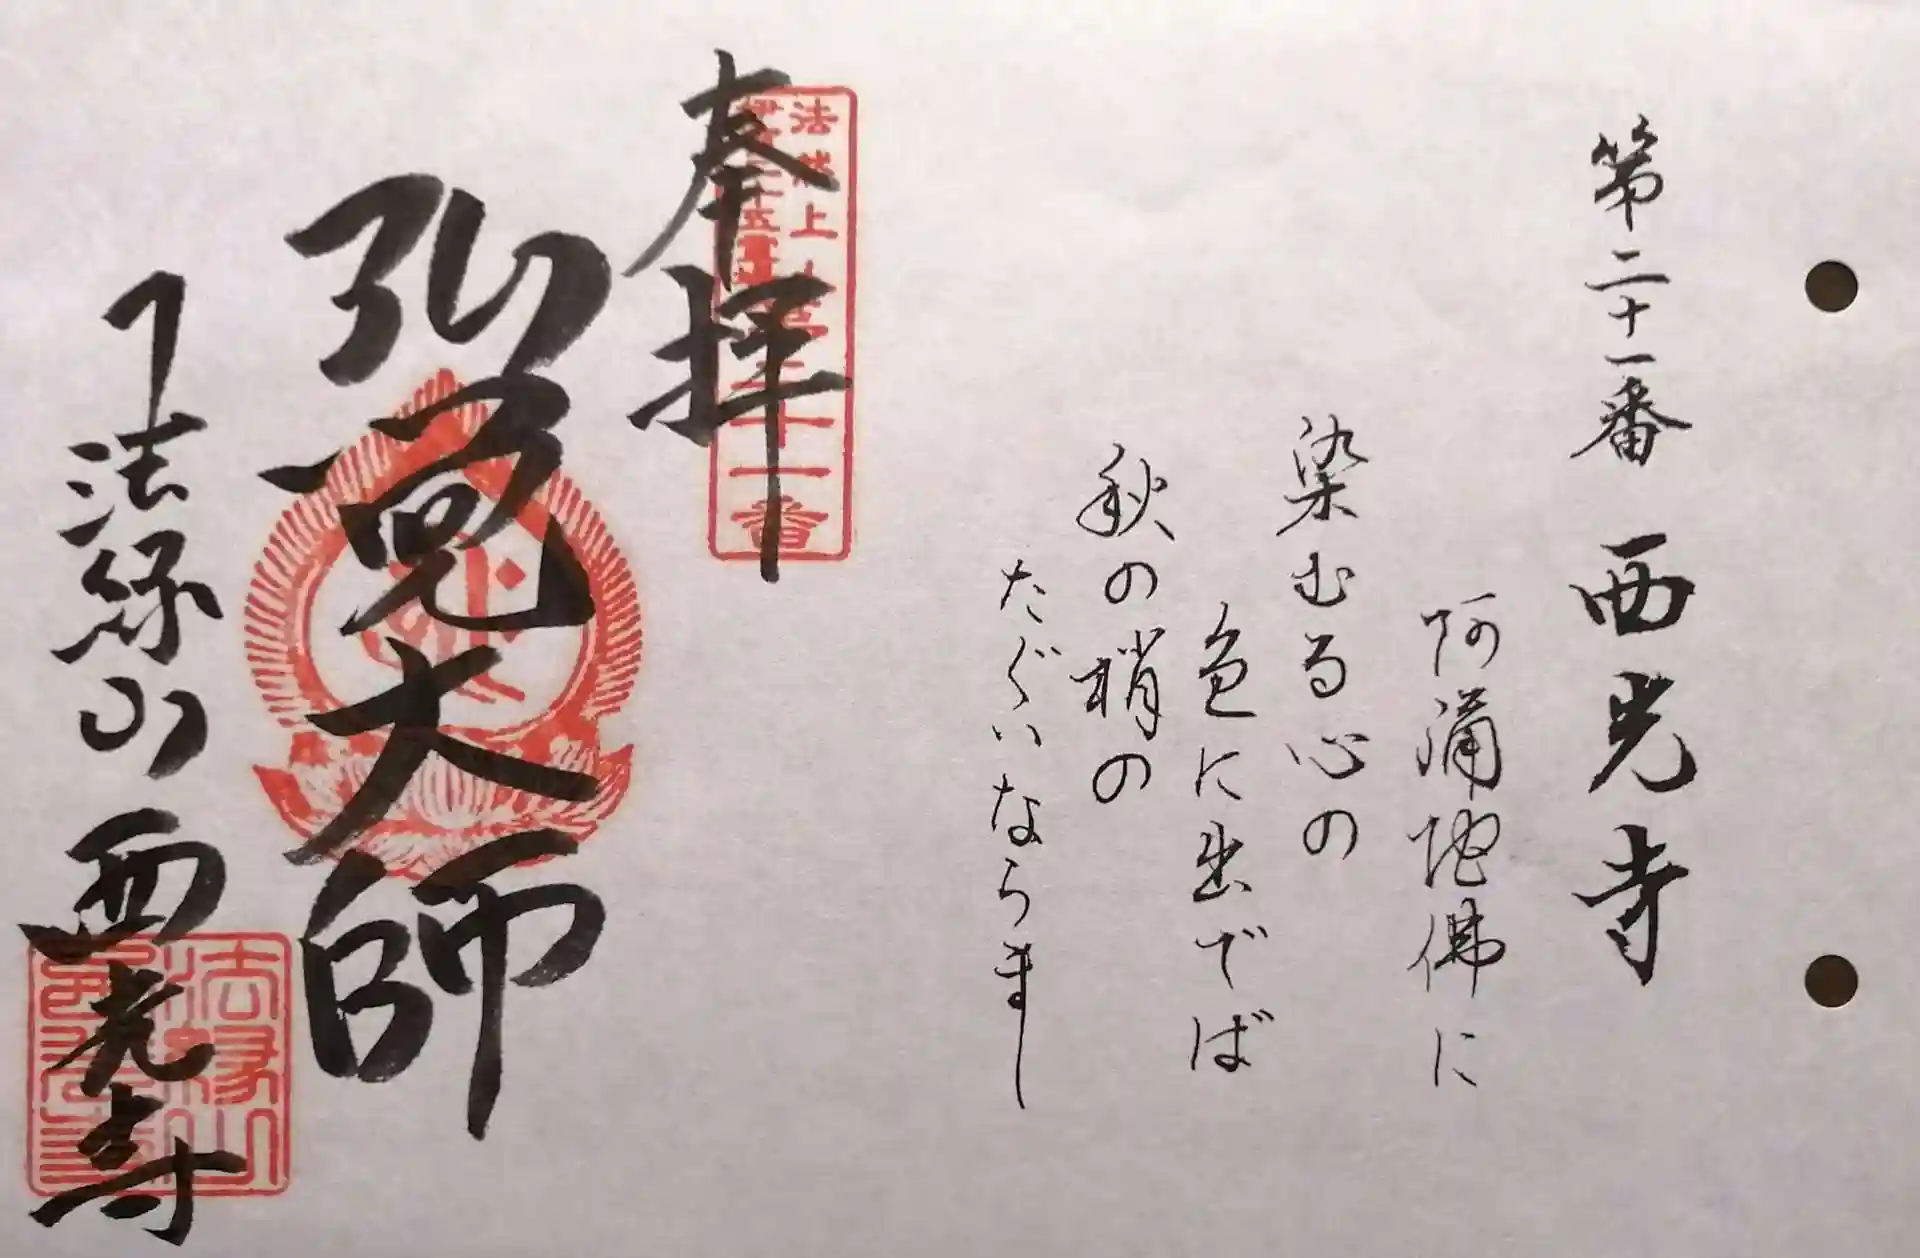 第二十一番 西光寺
阿彌陀佛に
染むる心の
色に出でば
秋の梢の
たぐいならまし
奉拝
法然上人
二十五霊
二十一番
弘覚大師
法縁山 西光寺
法縁山